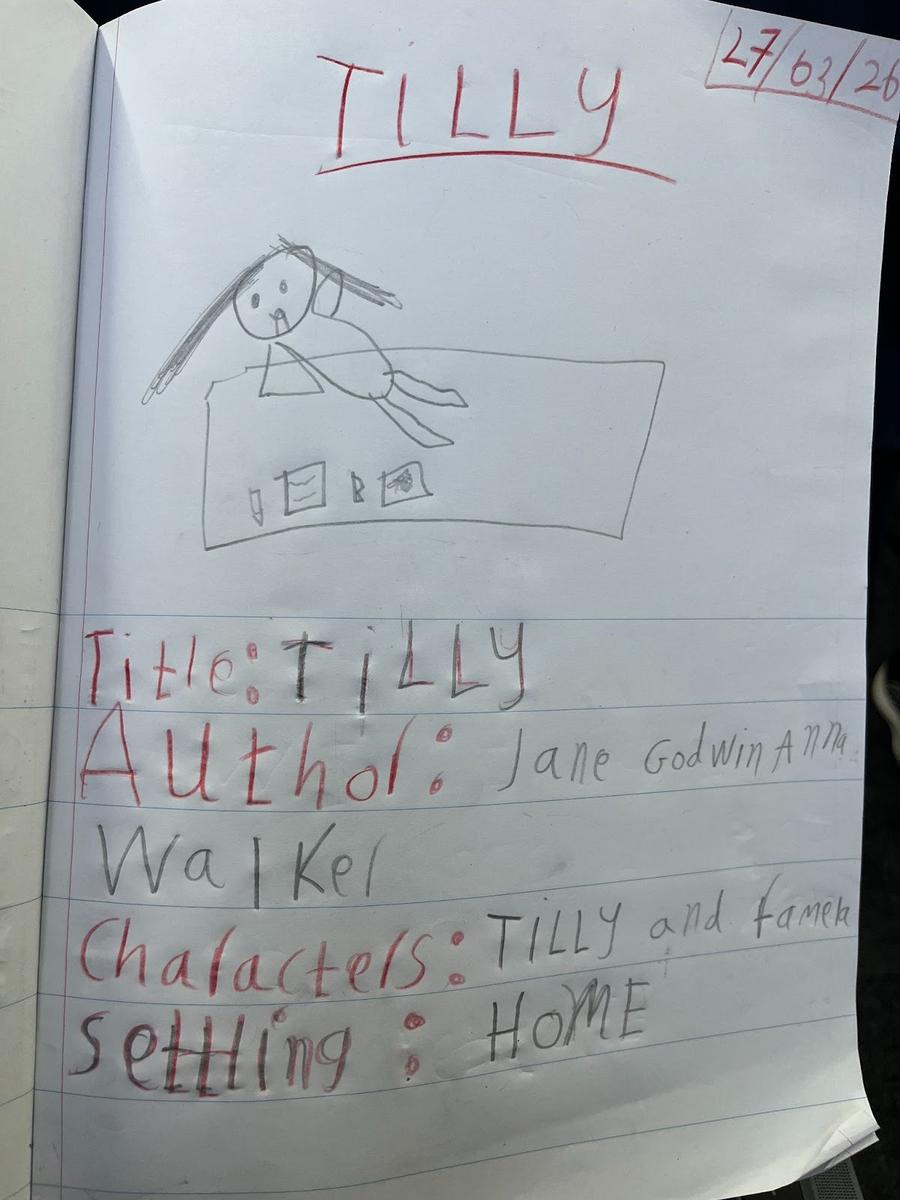 27/03/26
TiLLY
Title: TiLLY
Author: Jane Godwin Anna
Walker
Characters: TiLLY and
Settling : HOME